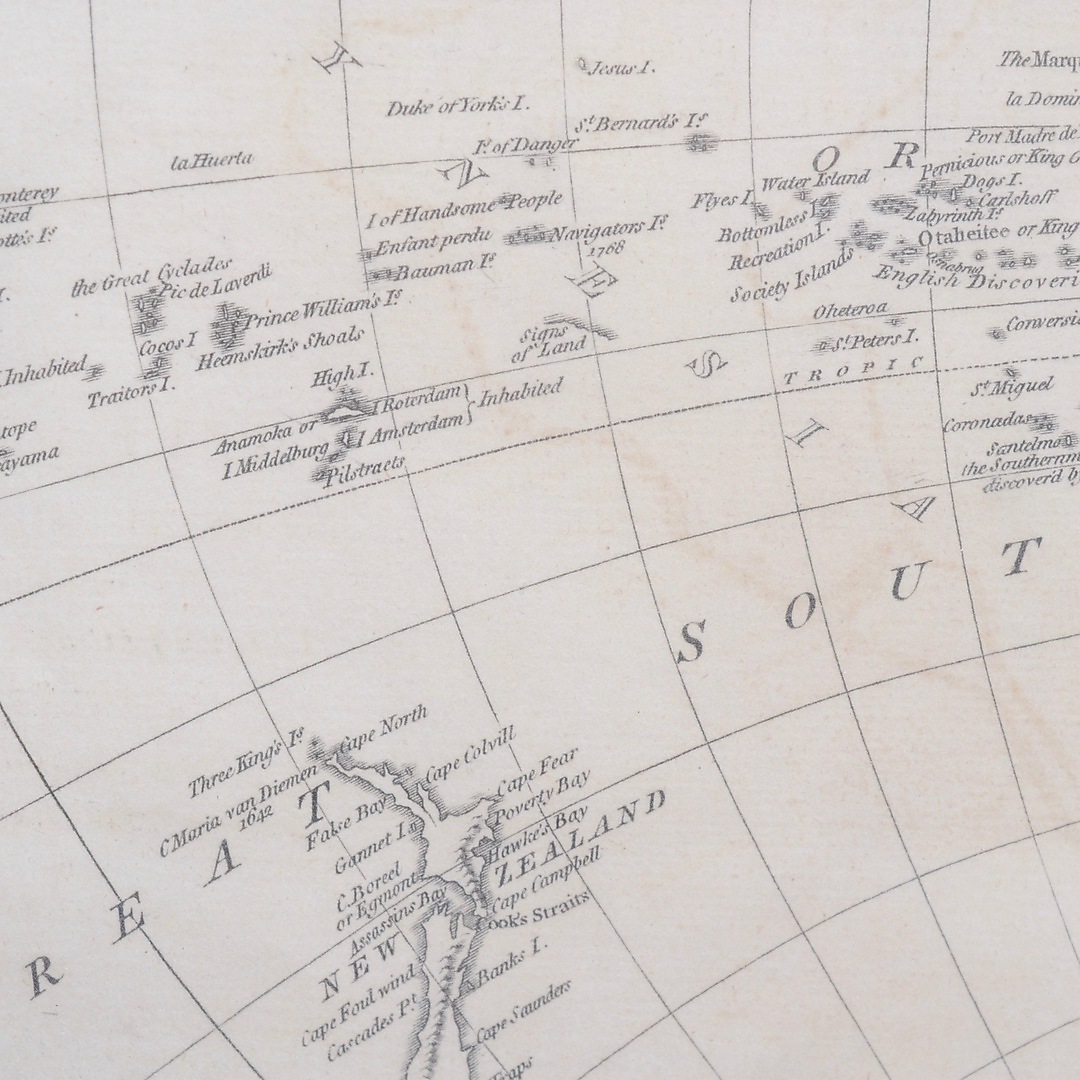 Jesus I.
The Marq
la Domin
Duke of York's I.
St. Bernard's Is.
Port Madre de
la Huerta
Is. of Danger
O R
Pernicious or King G
Water Island
Dogs I.
onterey
ited
otte's Is.
I of Handsome People
Flyes I.
Carlshoff
Labyrinth Is.
Bottomless I.
Enfant perdu
Navigators Is.
1768
Recreation I.
Otaheitee or King
Bauman Is.
Society Islands
English Discoveri
the Great Cyclades
Pic de Laverdi
Prince William's Is.
Oheteroa
Conversi
Cocos I
Heemskirk's Shoals
Signs
of Land
St. Peters I.
Inhabited
Traitors I.
High I.
TROPIC
St. Miguel
I Roterdam
Inhabited
Anamoka or
I Amsterdam
Coronadas
tope
I Middelburg
Santelmo
ayama
Pilstraets
the Southernm
discover'd by
Y N E S I A
S O U T
Three King's Is.
Cape North
Cape Colvill
C Maria van Diemen
1642
Cape Fear
Poverty Bay
False Bay
Hawke's Bay
Gannet I.
ZEALAND
C. Boreel
or Egmont
Cape Campbell
Assassins Bay
Cook's Straits
NEW
Banks I.
Cape Foulwind
Cascades Pt.
Cape Saunders
Traps
R E A T